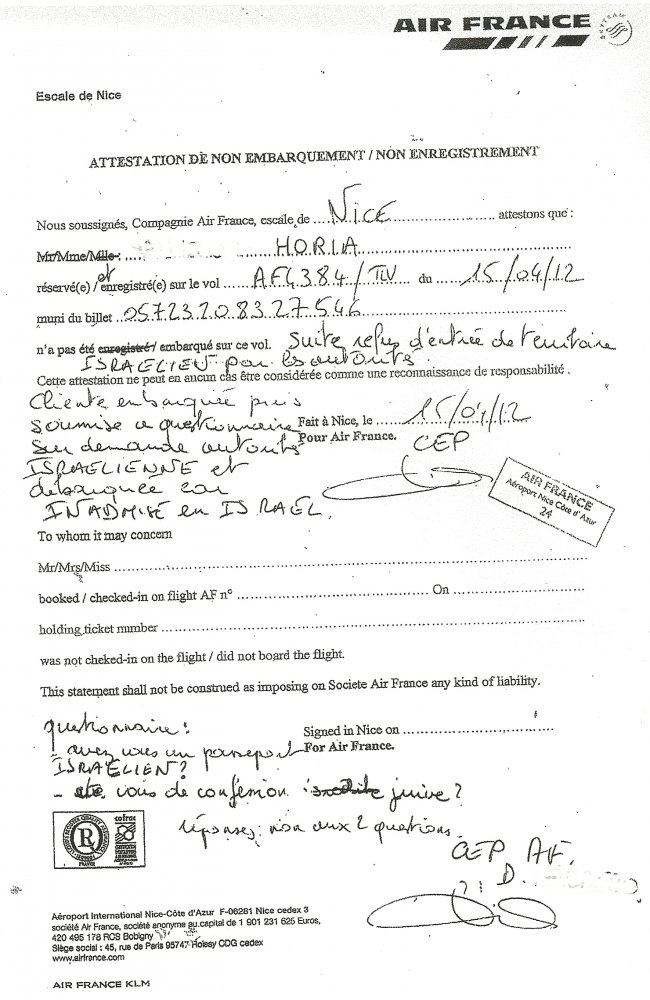 AIR FRANCE
SKYTEAM
Escale de Nice
ATTESTATION DE NON EMBARQUEMENT / NON ENREGISTREMENT
Nous soussignés, Compagnie Air France, escale de .... NICE .... attestons que :
Mr/Mme/Mlle : .... HORIA ....
réservé(e) / et enregistré(e) sur le vol .... AF4384/TLV .... du .... 15/04/12
muni du billet .. 05723208327546 ....
n'a pas été enregistré / embarqué sur ce vol. Suite refus d'entrée de territoire
ISRAELIEN par les autorités.
Cette attestation ne peut en aucun cas être considérée comme une reconnaissance de responsabilité .
Cliente embarquée puis
soumise a questionnaire
sur demande autorités
ISRAELIENNE et
debarquée car
INADMISE en ISRAEL.
Fait à Nice, le .... 15/04/12
Pour Air France. CEP
AIR FRANCE
Aéroport Nice Côte d'Azur
24
To whom it may concern
Mr/Mrs/Miss ....
booked / checked-in on flight AF n° .... On ....
holding ticket number ....
was not cheked-in on the flight / did not board the flight.
This statement shall not be construed as imposing on Societe Air France any kind of liability.
Signed in Nice on ....
For Air France.
questionnaire :
- avez vous un passeport
ISRAËLIEN ?
- etes vous de confession juive ?
réponses : non aux 2 questions.
CEP AF.
D.
cofrac
FRANCE
Aéroport International Nice-Côte d'Azur F-06281 Nice cedex 3
société Air France, société anonyme au capital de 1 901 231 625 Euros,
420 495 178 RCS Bobigny
Siège social : 45, rue de Paris 95747 Roissy CDG cedex
www.airfrance.com
AIR FRANCE KLM